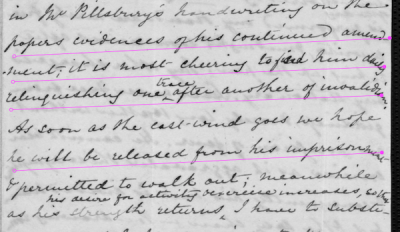 in Mr Pillsbury's handwriting on the
papers evidences of his continued amend-
ment; it is most cheering to find him daily
relinquishing one trace after another of invalidism.
As soon as the east-wind goes we hope
he will be released from his imprisonment
& permitted to walk out; meanwhile
his desire for activity increases,
as his strength returns, I have to substi-